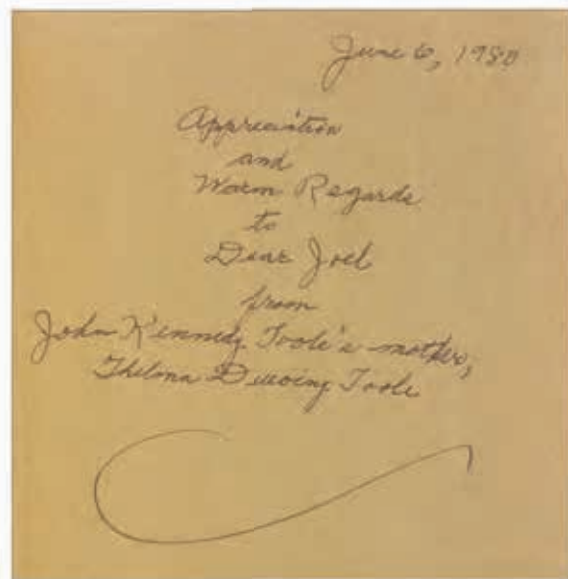 June 6, 1980
Appreciation
and
Warm Regards
to
Dear Joel
from
John Kennedy Toole's mother,
Thelma Ducoing Toole